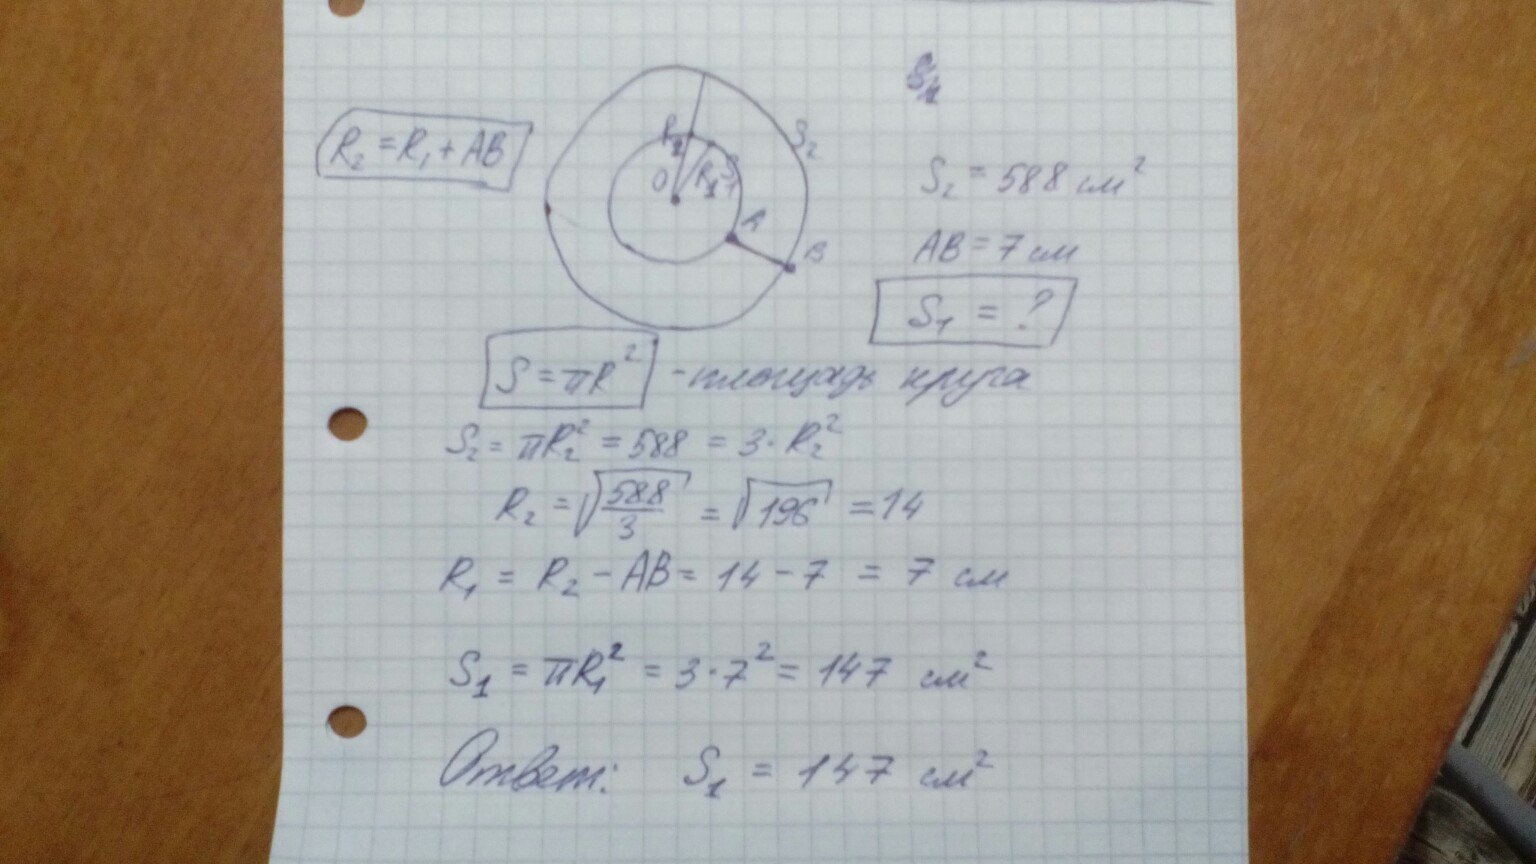 R₂ = R₁ + AB
R₂
O
R₁
S₁
S₂
A
B
S₂ = 588 см²
AB = 7 см
S₁ = ?
S = πR² - площадь круга
S₂ = πR₂² = 588 = 3·R₂²
R₂ = √(588/3) = √196 = 14
R₁ = R₂ - AB = 14 - 7 = 7 см
S₁ = πR₁² = 3·7² = 147 см²
Ответ: S₁ = 147 см²